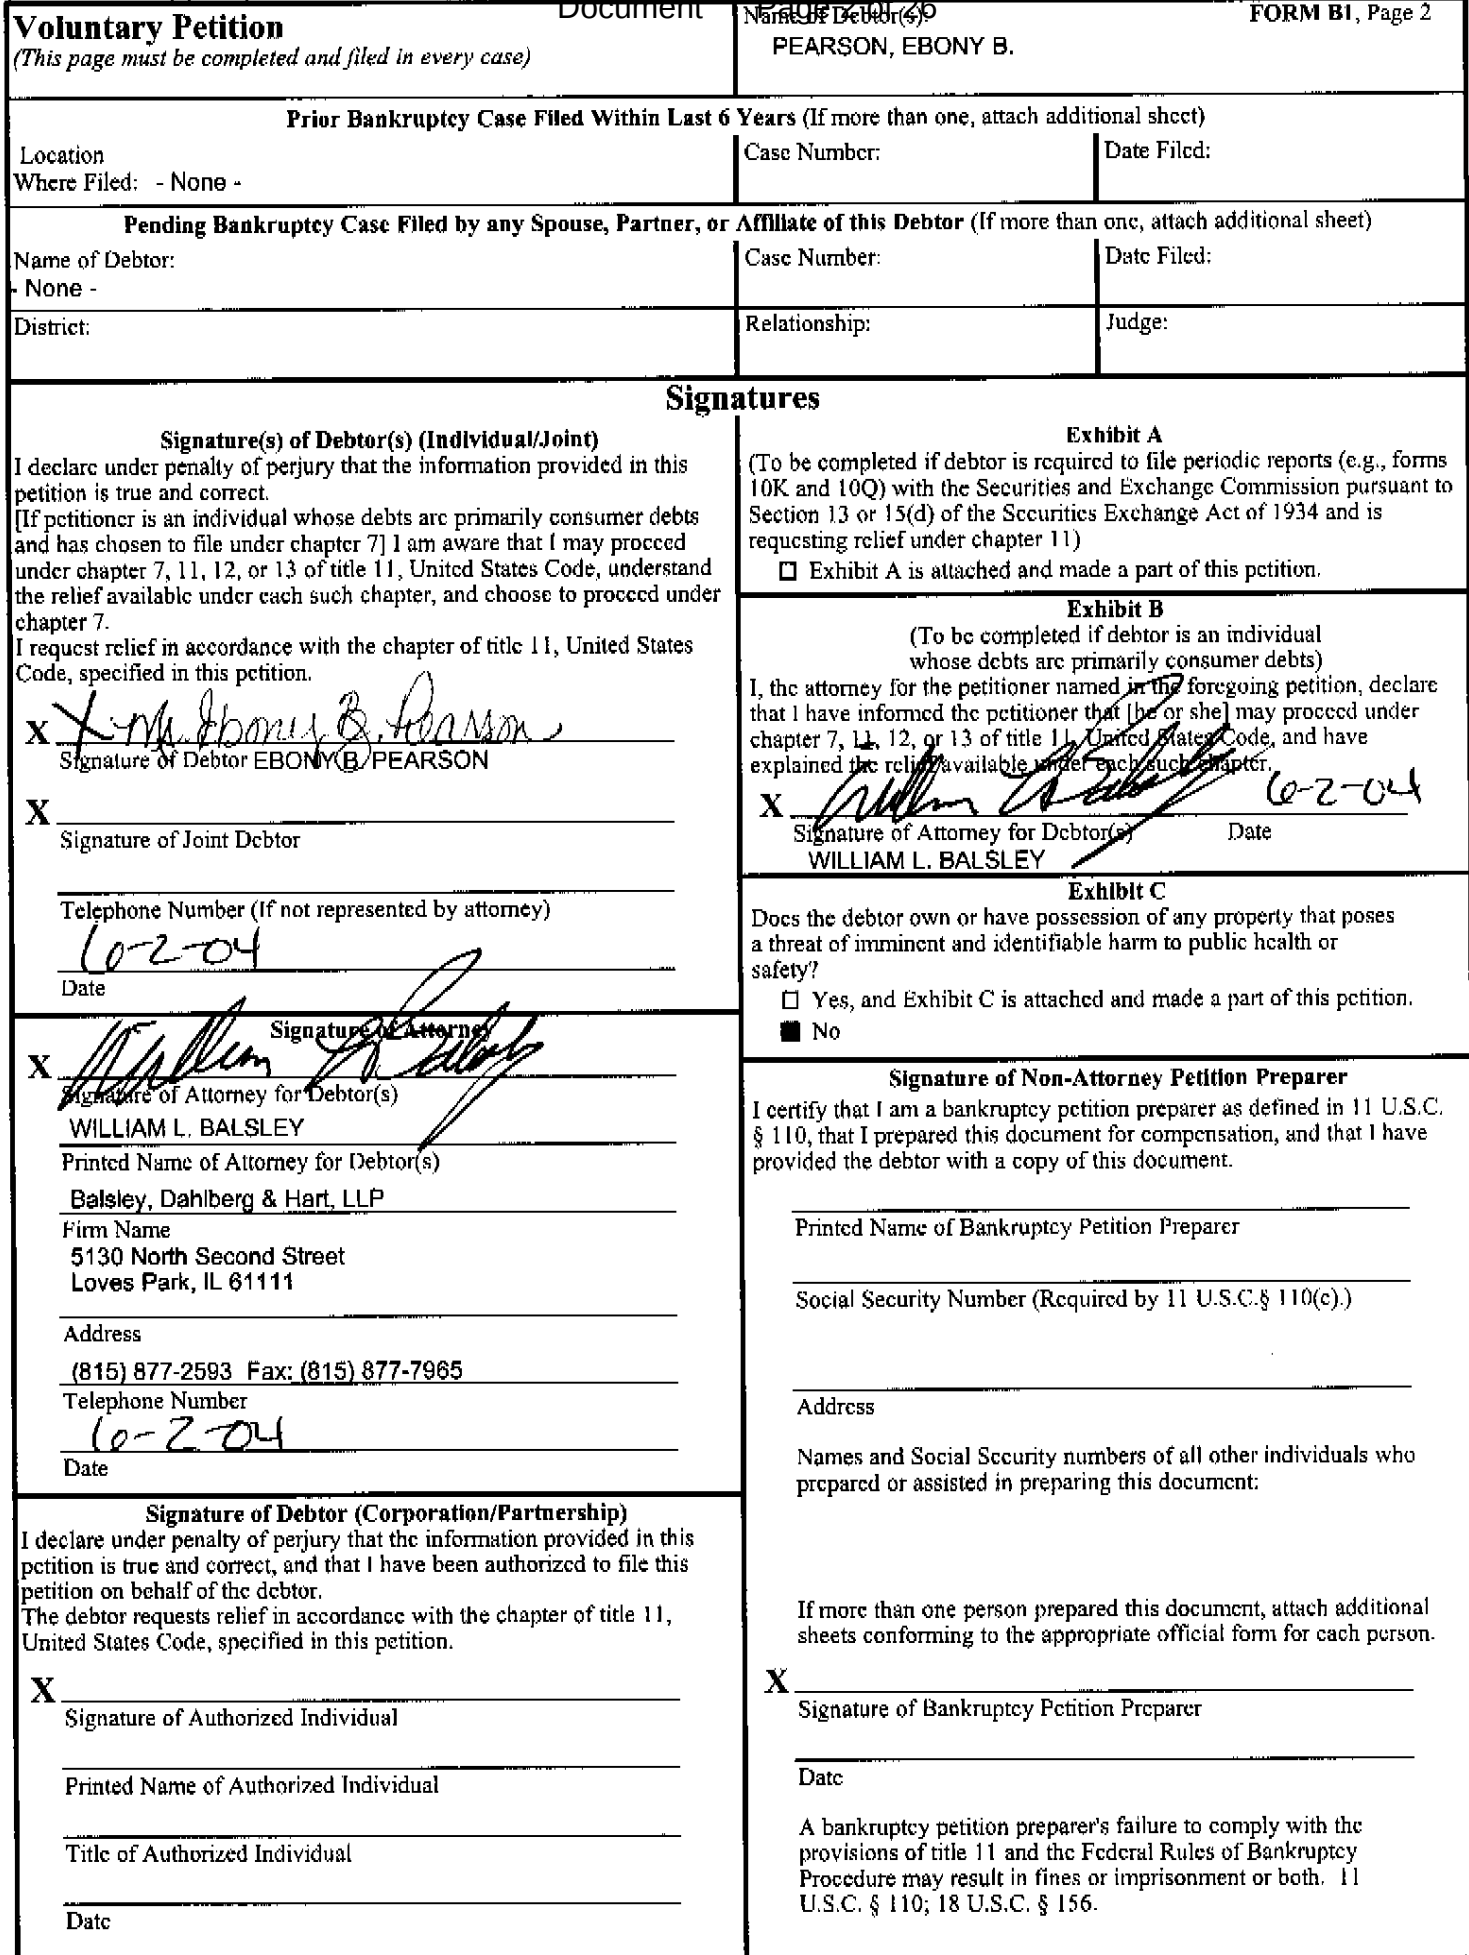 Document Page 2 of 26
Voluntary Petition
(This page must be completed and filed in every case)
Name of Debtor(s):
FORM B1, Page 2
PEARSON, EBONY B.
Prior Bankruptcy Case Filed Within Last 6 Years (If more than one, attach additional sheet)
Location
Where Filed: - None -
Case Number:
Date Filed:
Pending Bankruptcy Case Filed by any Spouse, Partner, or Affiliate of this Debtor (If more than one, attach additional sheet)
Name of Debtor:
- None -
Case Number:
Date Filed:
District:
Relationship:
Judge:
Signatures
Signature(s) of Debtor(s) (Individual/Joint)
I declare under penalty of perjury that the information provided in this
petition is true and correct.
[If petitioner is an individual whose debts are primarily consumer debts
and has chosen to file under chapter 7] I am aware that I may proceed
under chapter 7, 11, 12, or 13 of title 11, United States Code, understand
the relief available under each such chapter, and choose to proceed under
chapter 7.
I request relief in accordance with the chapter of title 11, United States
Code, specified in this petition.
X X Ebony B. Pearson
Signature of Debtor EBONY B. PEARSON
X
Signature of Joint Debtor
Telephone Number (If not represented by attorney)
6-2-04
Date
Signature of Attorney
X William L. Balsley
Signature of Attorney for Debtor(s)
WILLIAM L. BALSLEY
Printed Name of Attorney for Debtor(s)
Balsley, Dahlberg & Hart, LLP
Firm Name
5130 North Second Street
Loves Park, IL 61111
Address
(815) 877-2593 Fax: (815) 877-7965
Telephone Number
6-2-04
Date
Signature of Debtor (Corporation/Partnership)
I declare under penalty of perjury that the information provided in this
petition is true and correct, and that I have been authorized to file this
petition on behalf of the debtor.
The debtor requests relief in accordance with the chapter of title 11,
United States Code, specified in this petition.
X
Signature of Authorized Individual
Printed Name of Authorized Individual
Title of Authorized Individual
Date
Exhibit A
(To be completed if debtor is required to file periodic reports (e.g., forms
10K and 10Q) with the Securities and Exchange Commission pursuant to
Section 13 or 15(d) of the Securities Exchange Act of 1934 and is
requesting relief under chapter 11)
☐ Exhibit A is attached and made a part of this petition.
Exhibit B
(To be completed if debtor is an individual
whose debts are primarily consumer debts)
I, the attorney for the petitioner named in the foregoing petition, declare
that I have informed the petitioner that [he or she] may proceed under
chapter 7, 11, 12, or 13 of title 11, United States Code, and have
explained the relief available under each such chapter.
X William L. Balsley 6-2-04
Signature of Attorney for Debtor(s) Date
WILLIAM L. BALSLEY
Exhibit C
Does the debtor own or have possession of any property that poses
a threat of imminent and identifiable harm to public health or
safety?
☐ Yes, and Exhibit C is attached and made a part of this petition.
■ No
Signature of Non-Attorney Petition Preparer
I certify that I am a bankruptcy petition preparer as defined in 11 U.S.C.
§ 110, that I prepared this document for compensation, and that I have
provided the debtor with a copy of this document.
Printed Name of Bankruptcy Petition Preparer
Social Security Number (Required by 11 U.S.C.§ 110(c).)
Address
Names and Social Security numbers of all other individuals who
prepared or assisted in preparing this document:
If more than one person prepared this document, attach additional
sheets conforming to the appropriate official form for each person.
X
Signature of Bankruptcy Petition Preparer
Date
A bankruptcy petition preparer's failure to comply with the
provisions of title 11 and the Federal Rules of Bankruptcy
Procedure may result in fines or imprisonment or both. 11
U.S.C. § 110; 18 U.S.C. § 156.